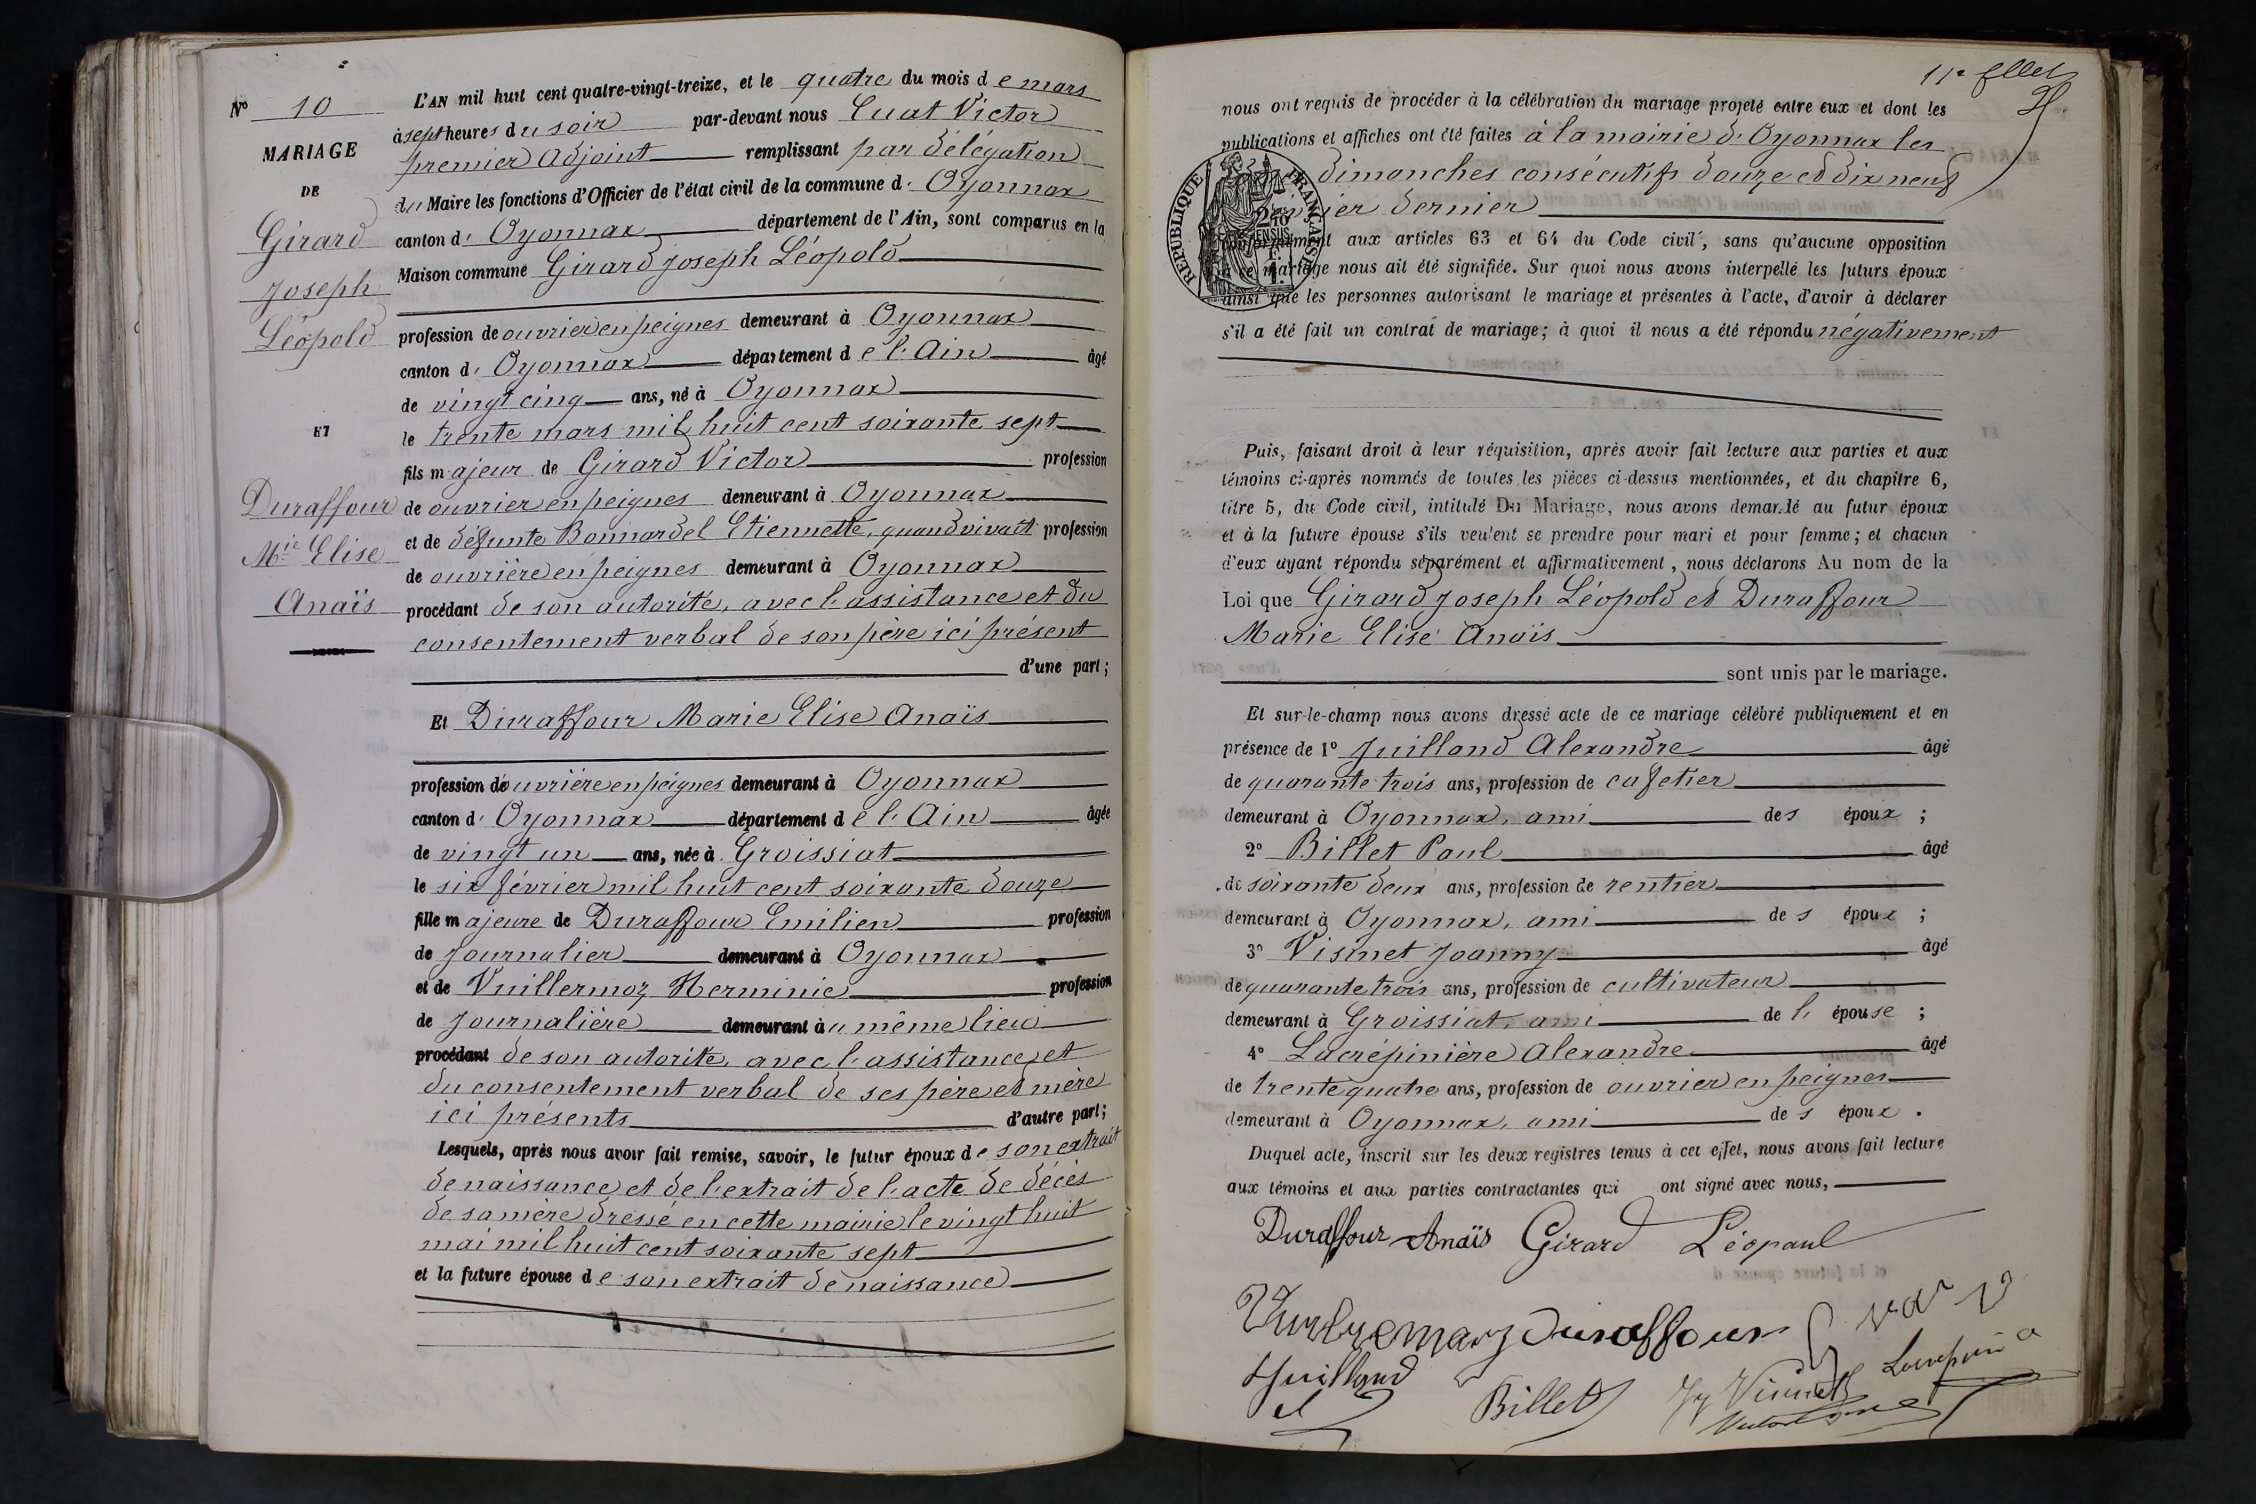 N° 10
MARIAGE
DE
Girard
Joseph
Léopold
ET
Duraffour
Mie Elise
Anaïs
L'AN mil huit cent quatre-vingt-treize, et le quatre du mois de mars
à sept heures du soir par-devant nous Cuat Victor
premier Adjoint remplissant par délégation
du Maire les fonctions d'Officier de l'état civil de la commune d' Oyonnax
canton d' Oyonnax département de l'Ain, sont comparus en la
Maison commune Girard Joseph Léopold
profession de ouvrier en peignes demeurant à Oyonnax
canton d' Oyonnax département de l'Ain âgé
de vingt cinq ans, né à Oyonnax
le trente mars mil huit cent soixante sept
fils majeur de Girard Victor profession
de ouvrier en peignes demeurant à Oyonnax
et de défunte Bonnardel Etiennette, quand vivait profession
de ouvrière en peignes demeurant à Oyonnax
procédant de son autorité, avec l'assistance et du
consentement verbal de son père ici présent
d'une part;
Et Duraffour Marie Elise Anaïs
profession de ouvrière en peignes demeurant à Oyonnax
canton d' Oyonnax département de l'Ain âgée
de vingt un ans, née à Groissiat
le six février mil huit cent soixante douze
fille majeure de Duraffour Emilien profession
de journalier demeurant à Oyonnax
et de Vuillermoz Herminie profession
de journalière demeurant au même lieu
procédant de son autorité, avec l'assistance et
du consentement verbal de ses père et mère
ici présents d'autre part;
Lesquels, après nous avoir fait remise, savoir, le futur époux de son extrait
de naissance et de l'extrait de l'acte de décès
de sa mère dressé en cette mairie le vingt huit
mai mil huit cent soixante sept
et la future épouse de son extrait de naissance
11e fllet
nous ont requis de procéder à la célébration du mariage projeté entre eux et dont les
publications et affiches ont été faites à la mairie d'Oyonnax les
dimanches consécutifs douze et dix neuf
février dernier
RÉPUBLIQUE FRANÇAISE
conformément aux articles 63 et 64 du Code civil, sans qu'aucune opposition
à ce mariage nous ait été signifiée. Sur quoi nous avons interpellé les futurs époux
ainsi que les personnes autorisant le mariage et présentes à l'acte, d'avoir à déclarer
s'il a été fait un contrat de mariage; à quoi il nous a été répondu négativement
Puis, faisant droit à leur réquisition, après avoir fait lecture aux parties et aux
témoins ci-après nommés de toutes les pièces ci-dessus mentionnées, et du chapitre 6,
titre 5, du Code civil, intitulé Du Mariage, nous avons demandé au futur époux
et à la future épouse s'ils veulent se prendre pour mari et pour femme; et chacun
d'eux ayant répondu séparément et affirmativement, nous déclarons Au nom de la
Loi que Girard Joseph Léopold et Duraffour
Marie Elise Anaïs
sont unis par le mariage.
Et sur-le-champ nous avons dressé acte de ce mariage célébré publiquement et en
présence de 1° Juilland Alexandre âgé
de quarante trois ans, profession de cafetier
demeurant à Oyonnax, ami des époux;
2° Billet Paul âgé
de soixante deux ans, profession de rentier
demeurant à Oyonnax, ami des époux;
3° Visinet Joanny âgé
de quarante trois ans, profession de cultivateur
demeurant à Groissiat, ami de l'épouse;
4° Lacrépinière Alexandre âgé
de trente quatre ans, profession de ouvrier en peignes
demeurant à Oyonnax, ami des époux.
Duquel acte, inscrit sur les deux registres tenus à cet effet, nous avons fait lecture
aux témoins et aux parties contractantes qui ont signé avec nous,
Duraffour Anaïs Girard Léopaul
Duraffour
Juilland
Billet